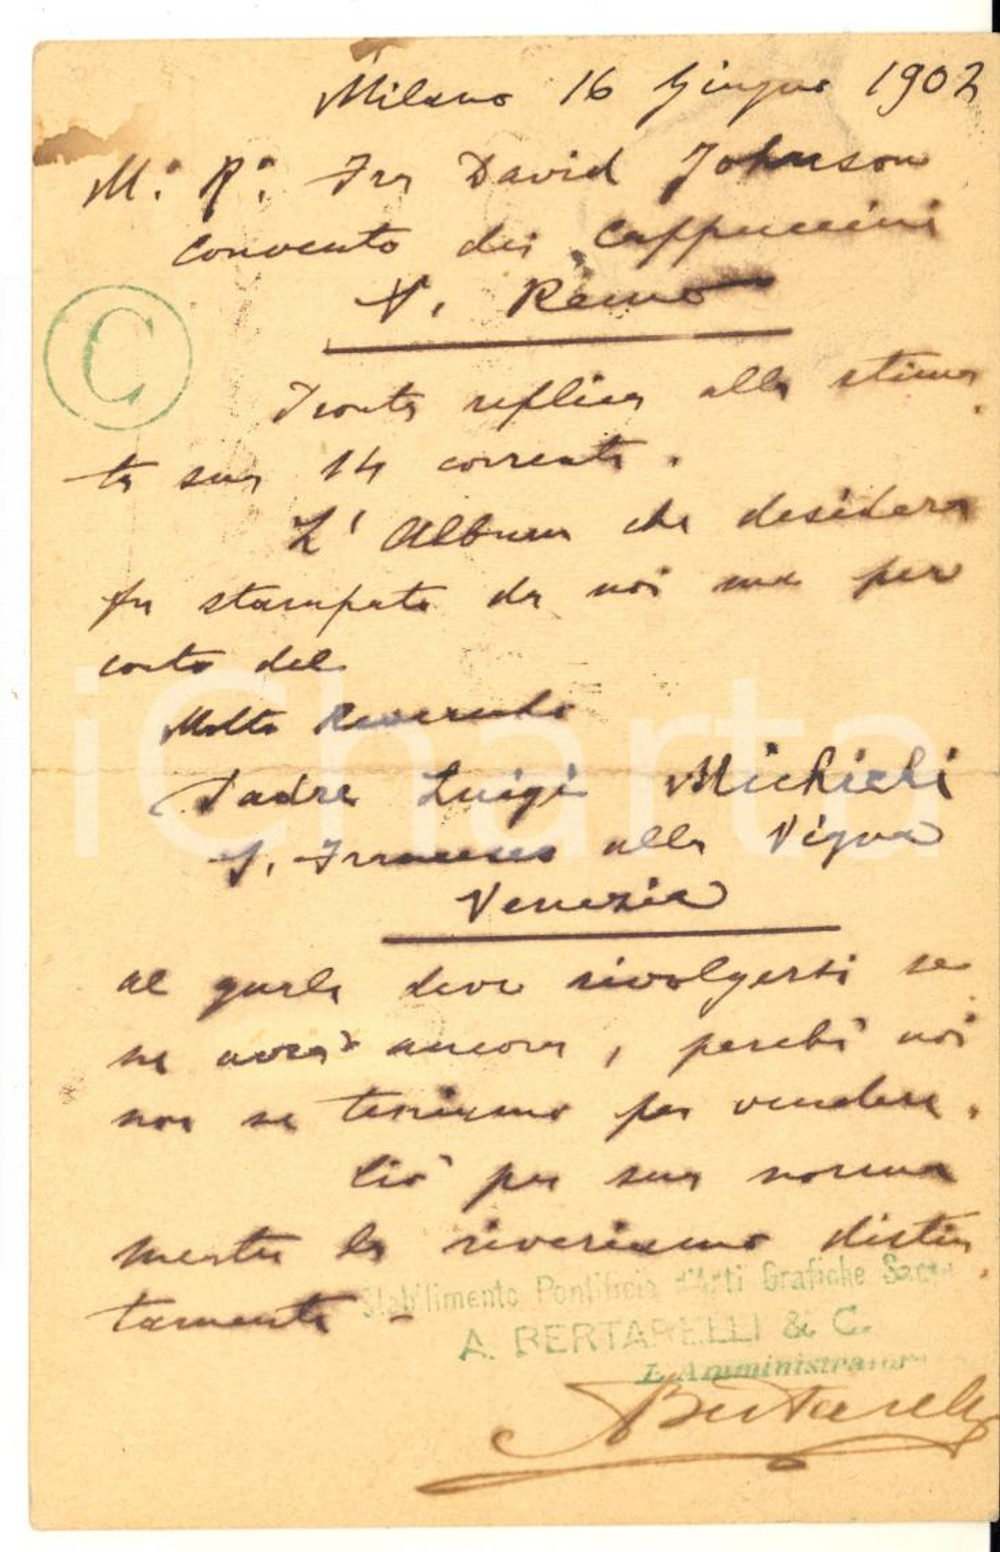 Milano 16 Giugno 1902
M.º R.º Fra David Johnson
Convento dei Cappuccini
S. Remo
C
Pronta replica alla stima
ta sua 14 corrente.
L'Album che desidera
fu stampato da noi ma per
conto del
Molto Reverendo
Padre Luigi Michieli
S. Francesco alla Vigna
Venezia
al quale deve rivolgersi se
ne avrà ancora, perchè noi
non ne teniamo per vendere.
Ciò per sua norma
mentre la riveriamo distin
tamente -
Stabilimento Pontificio d'Arti Grafiche Sacre
A. BERTARELLI & C.
L'Amministratore
ABertarelli
iCharta